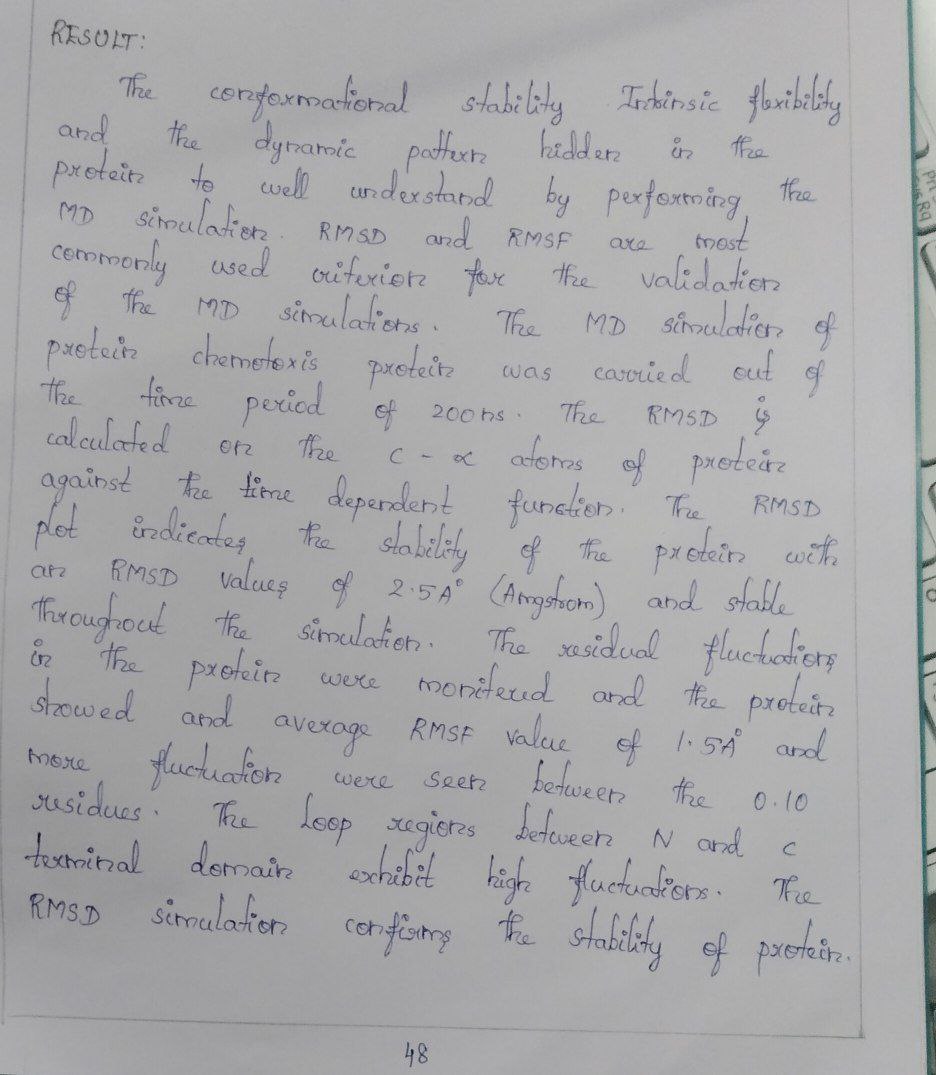 RESULT:
The conformational stability Intrinsic flexibility
and the dynamic pattern hidden in the
protein to well understand by performing the
MD simulation. RMSD and RMSF are most
commonly used criterion for the validation
of the MD simulations. The MD simulation of
protein chemotoxis protein was carried out of
the time period of 200ns. The RMSD is
calculated on the C-α atoms of protein
against the time dependent function. The RMSD
plot indicates the stability of the protein with
an RMSD values of 2.5A° (Amgstrom) and stable
throughout the simulation. The residual fluctuations
in the protein were monitered and the protein
showed and average RMSF value of 1.5A° and
more fluctuation were seen between the 0.10
residues. The Loop regions between N and C
terminal domain exhibit high fluctuations. The
RMSD simulation confirms the stability of protein.
48